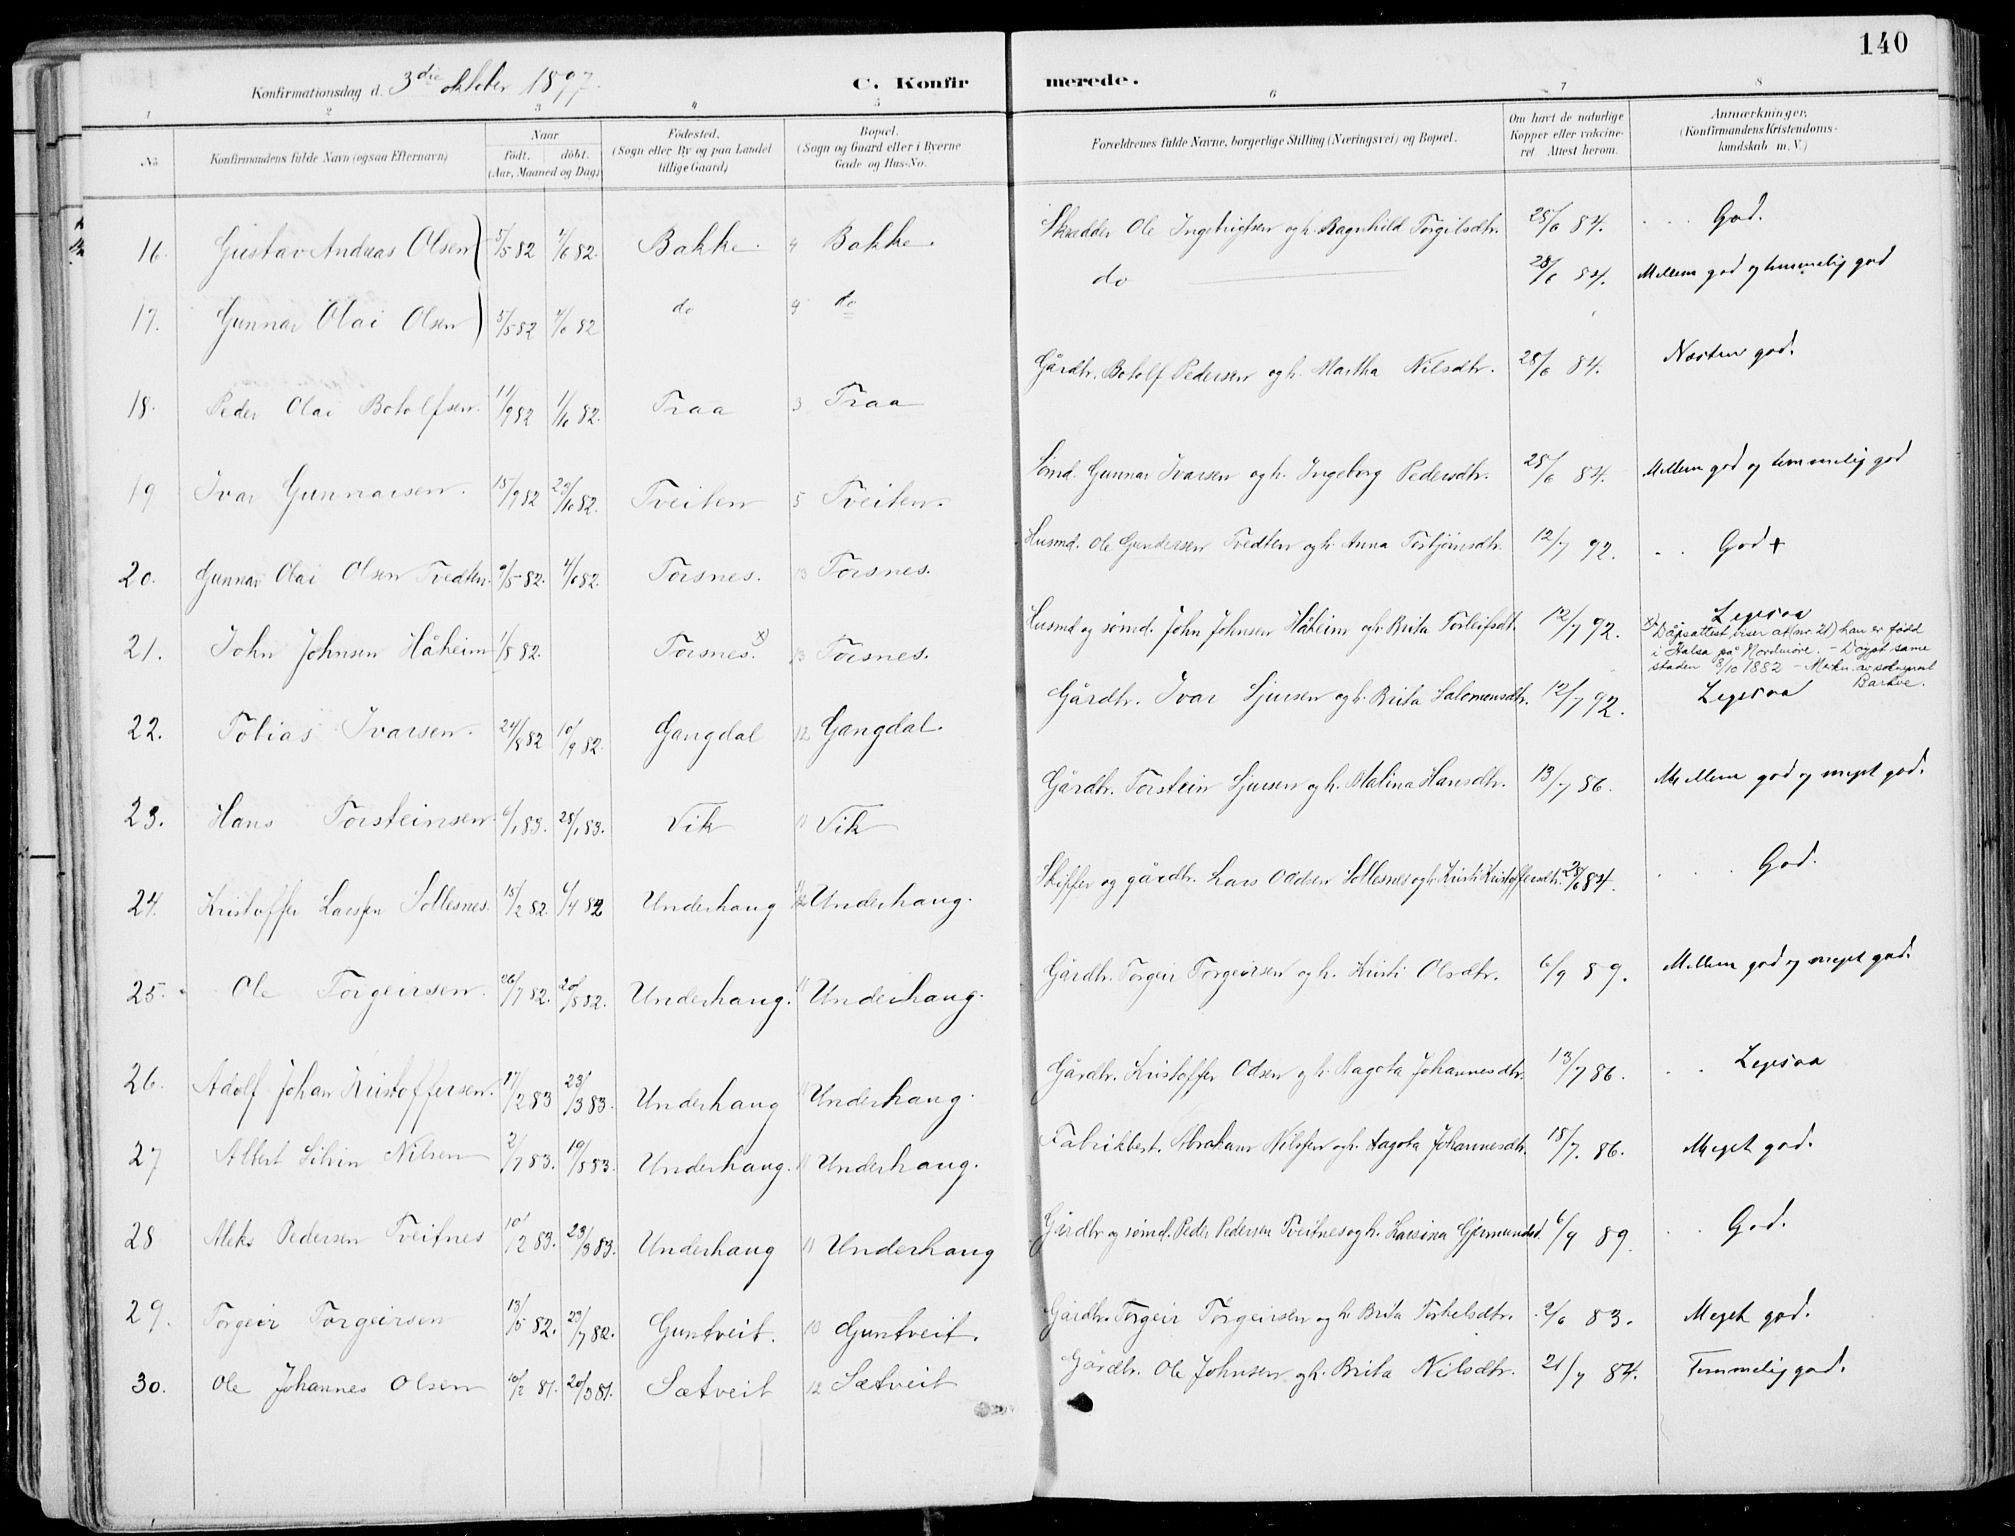 140
Konfirmationsdag d. 3die oktober 1897.
C. Konfirmerede.
1 2 3 4 5 6 7 8
No. Konfirmandens fulde Navn (ogsaa Efternavn) Naar født. døbt. (Aar, Maaned og Dag) Fødested. (Sogn eller By og paa Landet tillige Gaard) Bopæl. (Sogn og Gaard eller i Byerne Gade og Hus-No. Forældrenes fulde Navne, borgerlige Stilling (Næringsvei) og Bopæl. Om havt de naturlige Kopper eller vakcineret Attest herom. Anmærkninger. (Konfirmandens Kristendomskundskab m. V.)
16. Gustav Andreas Olsen 5/5 82 4/6 82. Bakke. 4 Bakke. Skrædder Ole Ingebrigtsen og h. Ragnhild Torgilsdtr. 28/6 84. God.
17. Gunnar Olai Olsen 5/5 82 4/6 82 do 9 do do 28/6 84. Mellem god og temmelig god
18. Peder Olai Botolfsen. 11/9 82 1/10 82. Traa 3 Traa Gårdbr. Botolf Pedersen og h. Martha Nilsdtr. 28/6 84. Næsten god.
19 Ivar Gunnarsen. 15/9 82 29/10 82. Tveiten 5 Tveiten. Sømd. Gunnar Ivarsen og h. Ingeborg Pedersdtr. 28/6 84. Mellem god og temmelig god
20. Gunnar Olai Olsen Tvedten. 9/5 82. 4/6 82. Torsnes. 13 Torsnes. Husmd. Ole Gundersen Tvedten og h. Anna Torbjørnsdtr. 12/7 92. God +
21. John Johnsen Håheim 1/8 82. Torsnes. x) 13 Torsnes. Husmd og sømd. John Johnsen Håheim og h. Brita Torleifsdt. 12/7 92. Ligesaa
x) Dåpsattest viser at (nr. 21) han er fødd
i Halsa på Nordmøre. - Døypt same
staden 8/10 1882 - Merkn. av sokneprest
Barkve.
22. Tobias Ivarsen. 24/8 82 10/9 82. Gangdal 12 Gangdal. Gårdbr. Ivar Sjursen og h. Brita Salomonsdtr. 12/7 92. Ligesaa
23. Hans Torsteinsen 6/1 83. 28/1 83. Vik 11 Vik Gårdbr. Torstein Sjursen og h. Malina Hansdtr. 13/7 86. Mellem god og meget god.
24. Kristoffer Larssen Sollesnes. 15/2 82. 6/4 82 Underhaug Underhaug. Skipper og gårdbr. Lars Oddsen Sollesnes og h. Kristi Kristoffersdtr. 28/6 84. God.
25. Ole Torgeirsen. 26/7 82. 20/8 82. Underhaug. 11 Underhaug. Gårdbr. Torgeir Torgeirsen og h. Kristi Olsdtr. 6/9 89. Mellem god og meget god.
26. Adolf Johan Kristoffersen. 17/2 83 23/3 83. Underhaug 11 Underhaug. Gårdbr. Kristoffer Odsen og h. Magota Johannesdtr. 13/7 86. Ligesaa
27 Albert Silvin Nilsen 2/7 83. 19/8 83. Underhaug. 11 Underhaug. Fabrikbest. Abraham Nilssen og h. Magota Johannesdtr. 15/7. 86. Meget god.
28 Aleks Pedersen Tveitnes 10/2 83. 23/3 83. Underhaug 11 Underhaug Gårdbr og sømd. Peder Pedersen Tveitnes og h. Larsina Gjermundsd. 6/9 89. God.
29. Torgeir Torgeirsen 13/5 82. 23/7 82. Guntveit. 10 Guntveit. Gårdbr. Torgeir Torgeirsen og h. Brita Torkelsdtr. 2/6 83. Meget god.
30. Ole Johannes Olsen 10/2 81. 20/3 81. Sætveit 12 Sætveit Gårdbr. Ole Johnsen og h. Brita Nilsdtr. 21/7 84. Temmelig god.